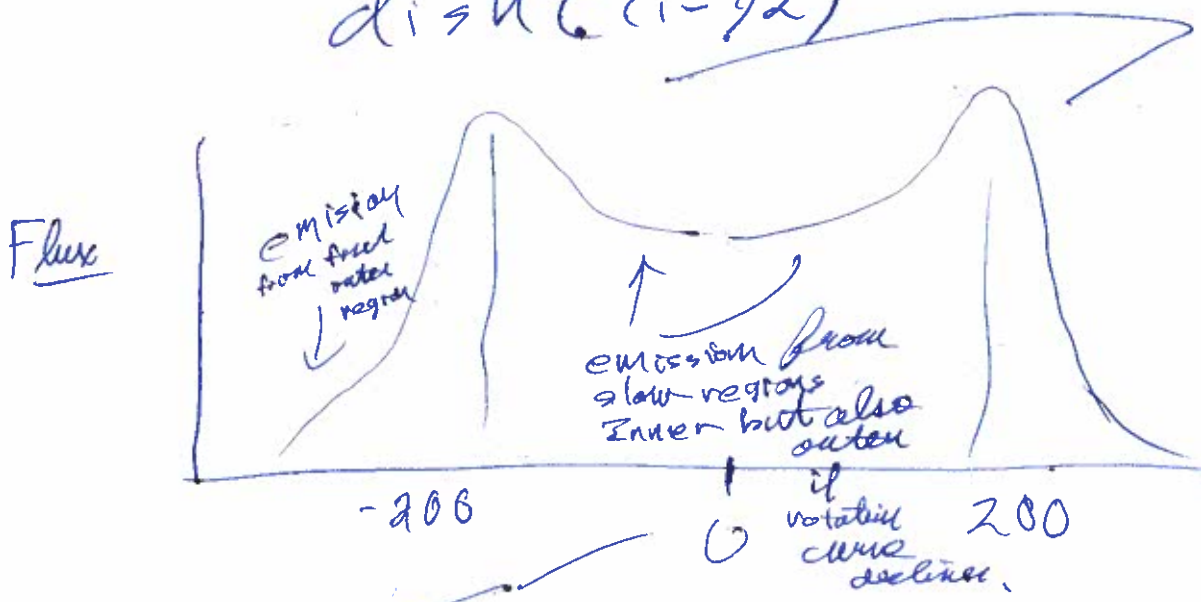 Flux
emision
from
region
emission from
slow regions
Inner but also
outer
if
rotation
curve
declines.
-200
0
200